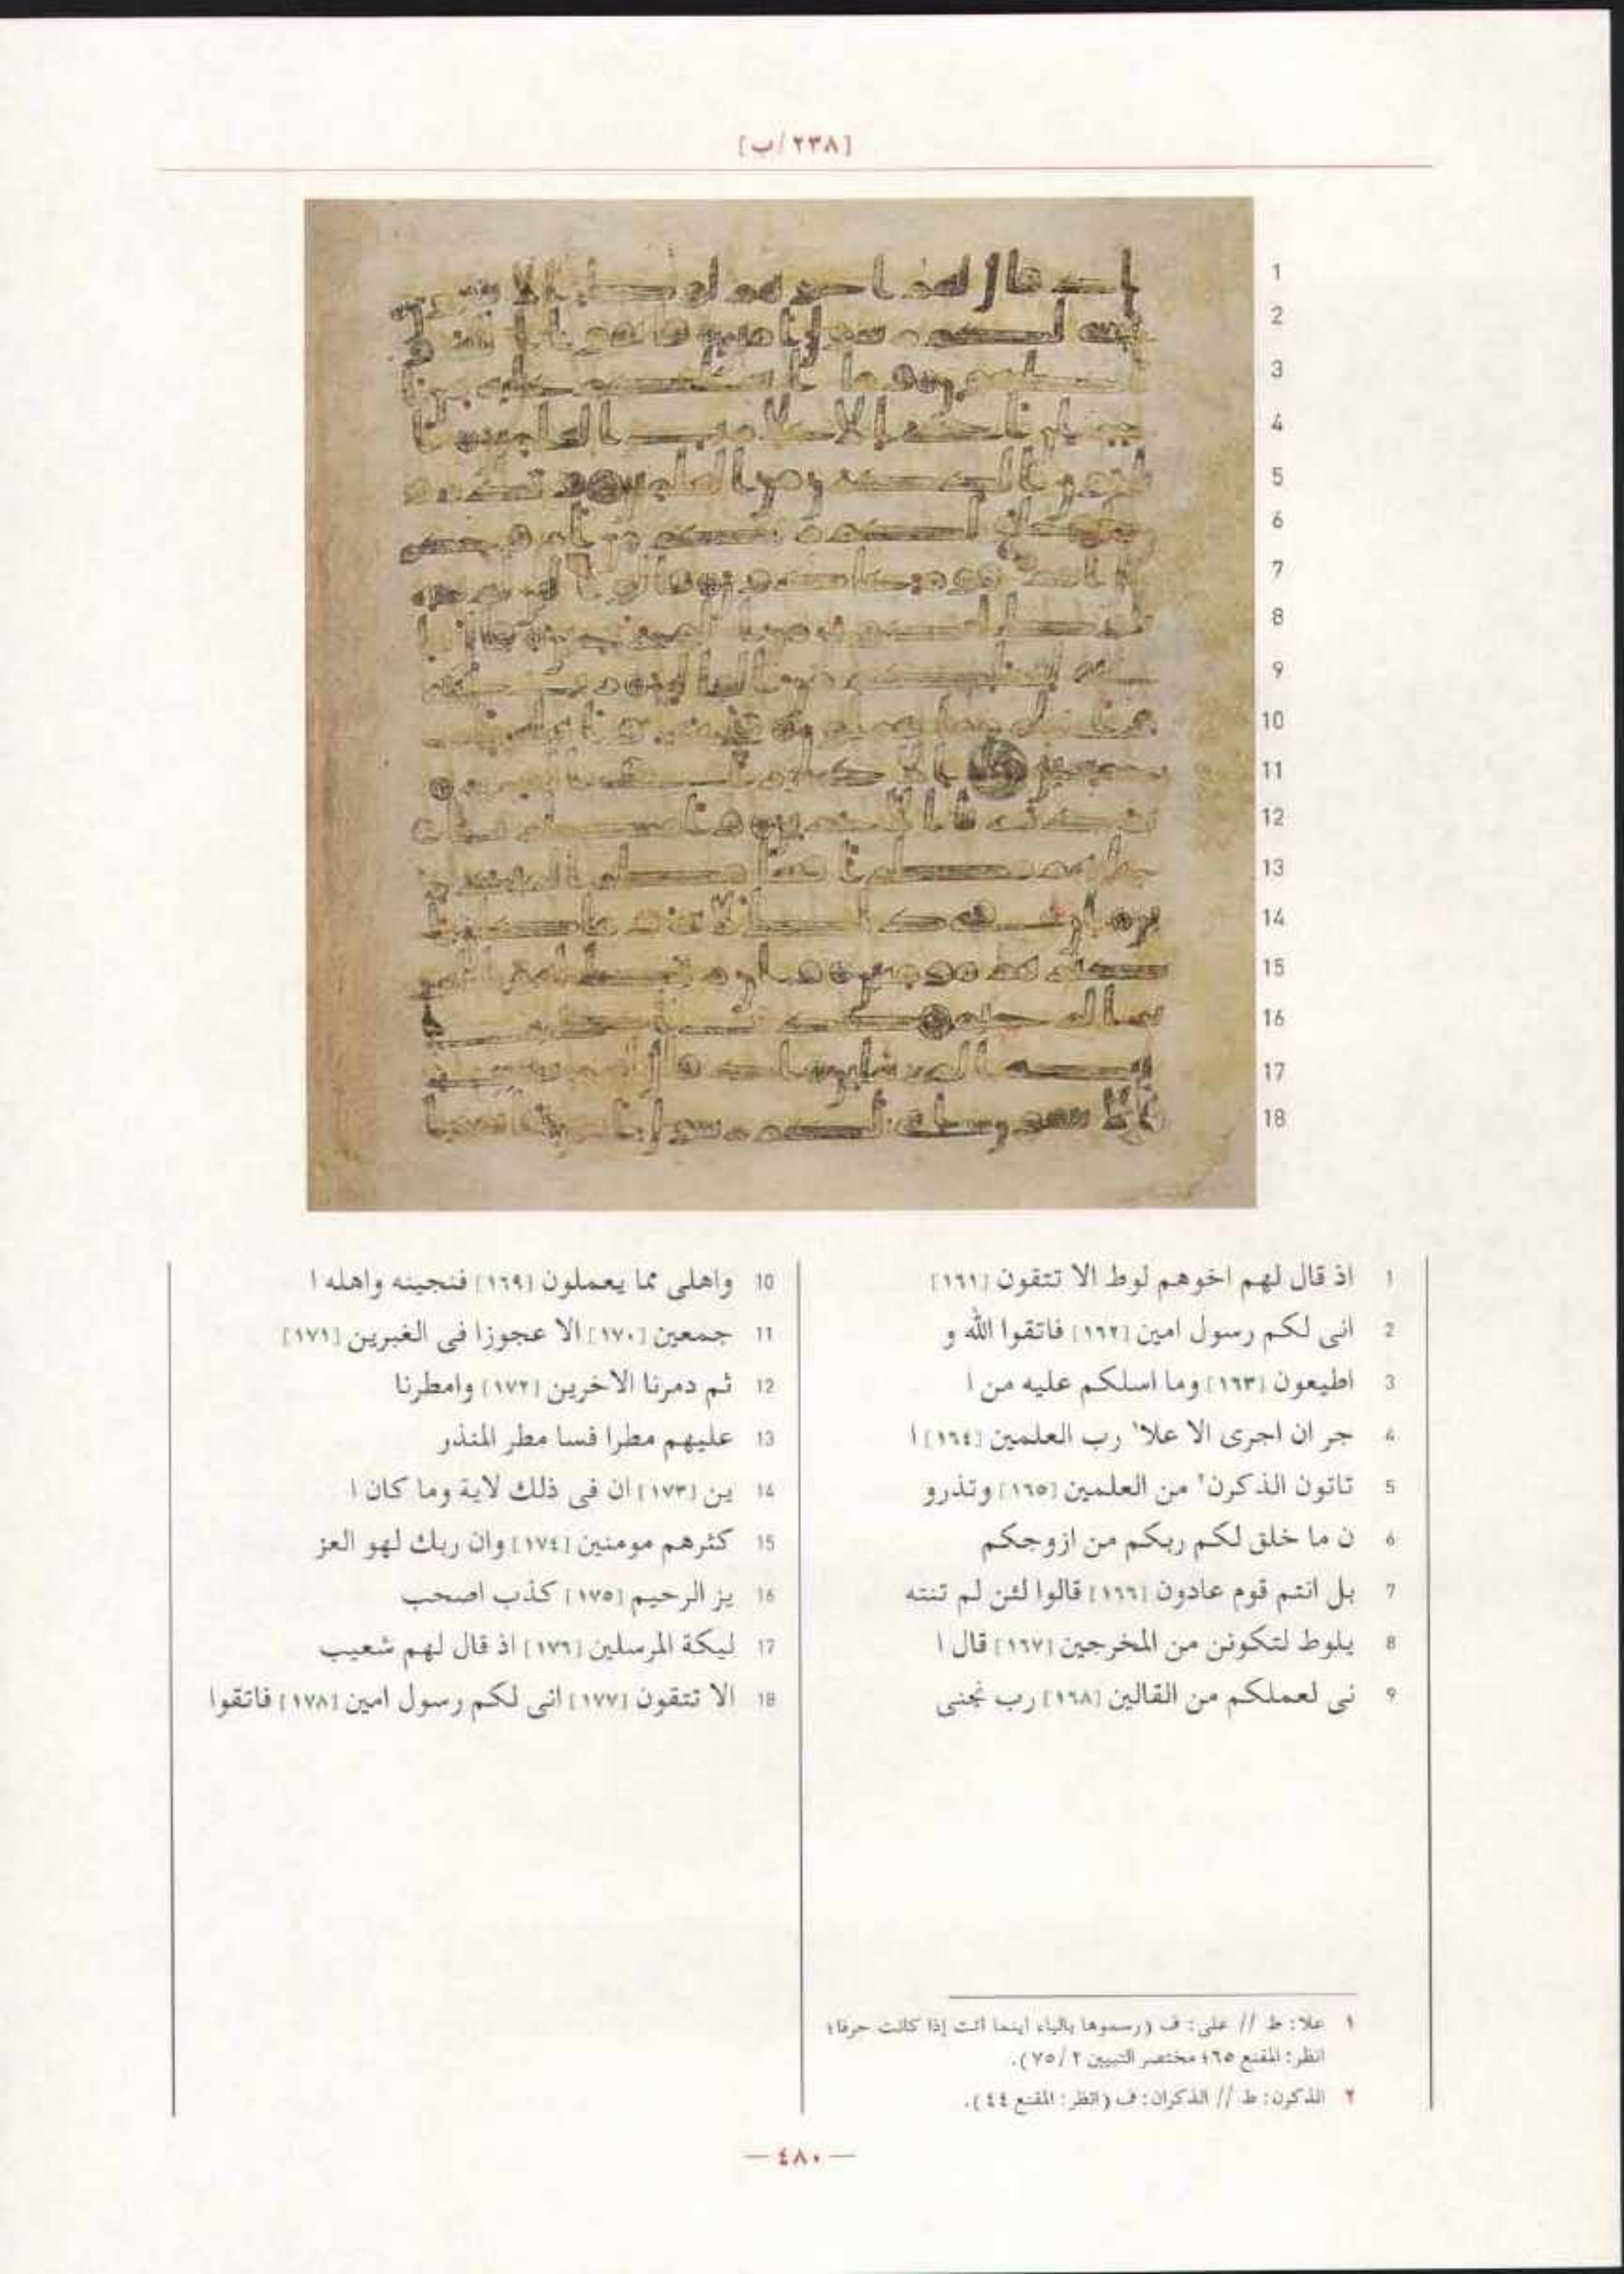 [٢٣٨/ب]
1 اذ قال لهم اخوهم لوط الا تتقون [١٦١]
2 انى لكم رسول امين [١٦٢] فاتقوا الله و
3 اطيعون [١٦٣] وما اسلكم عليه من ا
4 جر ان اجرى الا علا١ رب العلمين [١٦٤] ا
5 تاتون الذكرن٢ من العلمين [١٦٥] وتذرو
6 ن ما خلق لكم ربكم من ازوجكم
7 بل انتم قوم عادون [١٦٦] قالوا لئن لم تنته
8 يلوط لتكونن من المخرجين [١٦٧] قال ا
9 نى لعملكم من القالين [١٦٨] رب نجنى
10 واهلى مما يعملون [١٦٩] فنجينه واهله ا
11 جمعين [١٧٠] الا عجوزا فى الغبرين [١٧١]
12 ثم دمرنا الاخرين [١٧٢] وامطرنا
13 عليهم مطرا فسا مطر المنذر
14 ين [١٧٣] ان فى ذلك لاية وما كان ا
15 كثرهم مومنين [١٧٤] وان ربك لهو العز
16 يز الرحيم [١٧٥] كذب اصحب
17 ليكة المرسلين [١٧٦] اذ قال لهم شعيب
18 الا تتقون [١٧٧] انى لكم رسول امين [١٧٨] فاتقوا
١ علا: ط // على: ف (رسموها بالياء اينما أتت إذا كانت حرفا؛
انظر: المقنع ٦٥؛ مختصر التبيين ٢/ ٧٥).
٢ الذكرن: ط // الذكران: ف (انظر: المقنع ٤٤).
— ٤٨٠ —